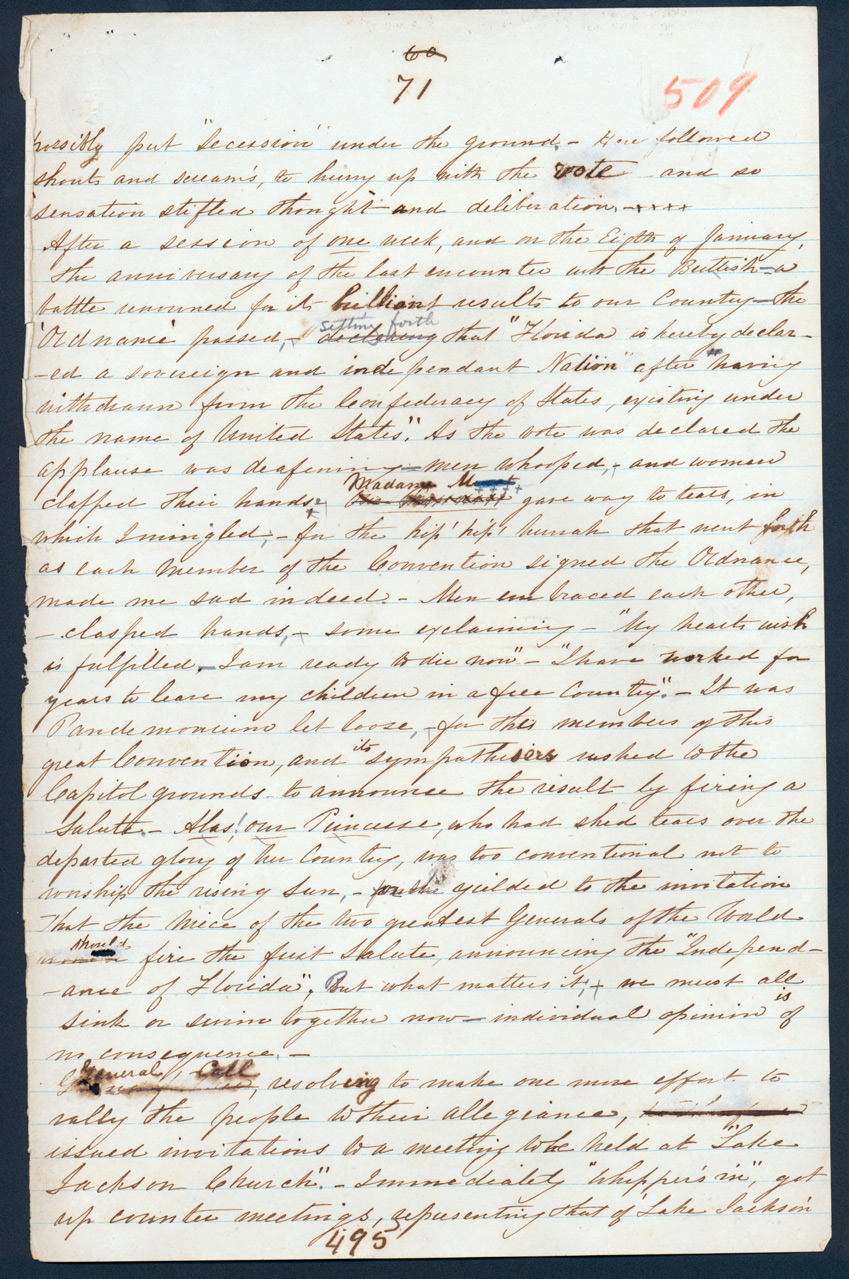 60
71
509
possibly put "Secession" under the ground. - Here followed
shouts and scream's, to hurry up with the vote - and so
sensation stifled thought and deliberation. - + + + +
After a session of one week, and on the Eighth of January,
the anniversary of the last encounter with the British = a
battle renouned for its brilliant results to our Country - the
'Ordnance' passed, - declaring that "Florida is hereby declar-
setting forth
-ed a sovereign and independant Nation" after "having
withdrawn from the Confederacy of States, existing under
the name of United States." As the vote was declared the
applause was deafening - men whooped, - and women
clapped their hands; Madame M gave way to tears, in
which I mingled, - for the hip' hip'! hurrah that went forth
as each Member of the Convention signed the Ordnance,
made me sad indeed. - Men embraced each other,
- clasped hands, - some exclaiming - "My hearts wish
is fulfilled. - I am ready to die now" - "I have worked for
years to leave my children in a free Country". - It was
Pandemonium let loose, - for the members of this
great Convention, and its sympathisers rushed to the
Capitol grounds to announce the result by firing a
Salute. - Alas! our Princesse, who had shed tears over the
departed glory of her Country, was too conventional not to
worship the rising Sun, - yielded to the invitation
That the Niece of the two greatest Generals of the World
should fire the first Salute, announcing the "Independ-
-ance of Florida"; But what matters it, + we must all
sink or swim together now - individual opinion is of
no consequence. -
General Call, resolving to make one more effort to
rally the people to their allegiance,
issued invitations to a meeting to be held at "Lake
Jackson Church". - Immediately "Whipper's in", got
up counter meetings, representing that of 'Lake Jackson
495